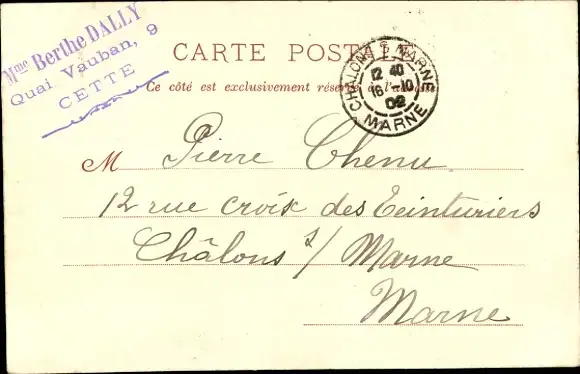 Mme Berthe DALLY
Quai Vauban, 9
CETTE
CARTE POSTALE
Ce côté est exclusivement réservé à l'adresse
CHALONS S MARNE
12 40
16 -10
02
MARNE
M Pierre Chenu
12 rue croix des Teinturiers
Châlons s/ Marne
Marne